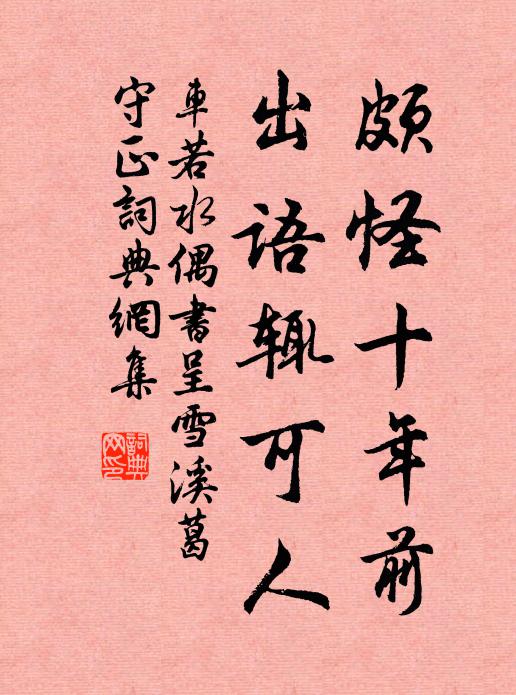 頗怪十年前
出語辄可人
車若水偶書呈雪溪葛
守正詞典網集
詞典网印